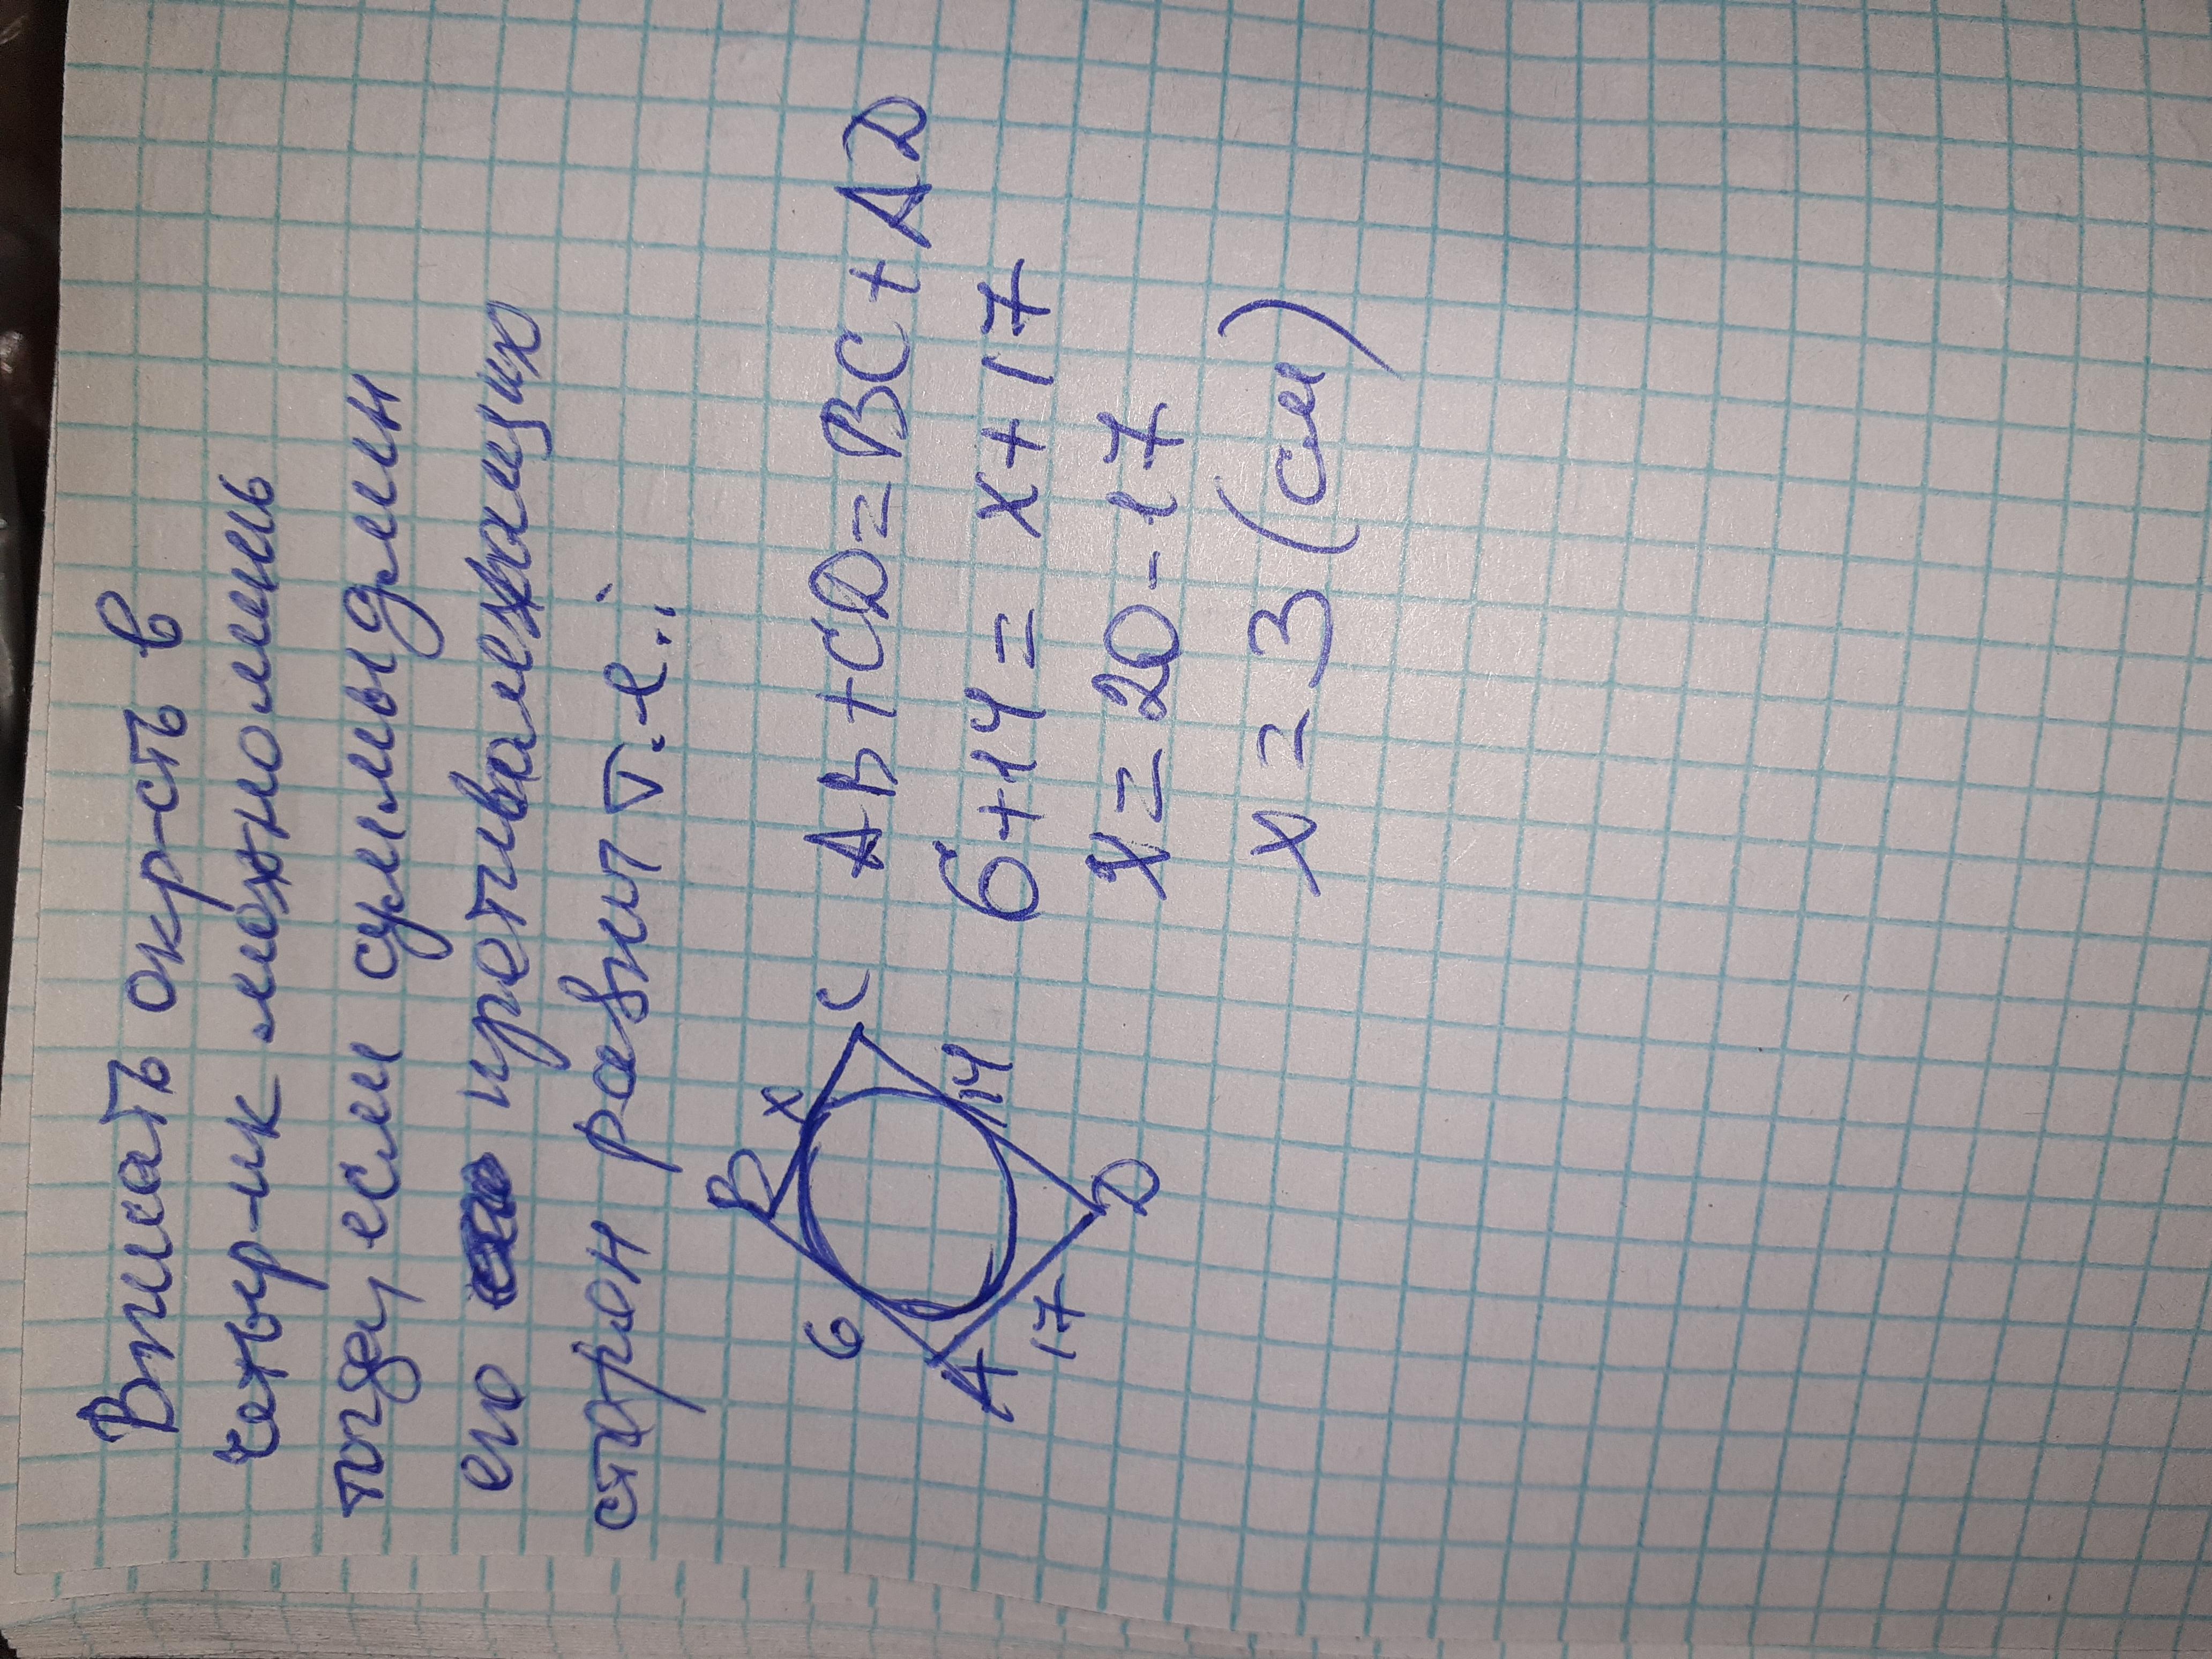 Вписать окр-сть в
четыр-ик можно лишь
тогда, если суммы длин
его противолежащих
сторон равны т.е.:
B x C
6 14
A 17 D
AB + CD = BC + AD
6 + 14 = x + 17
x = 20 - 17
x = 3 (см)